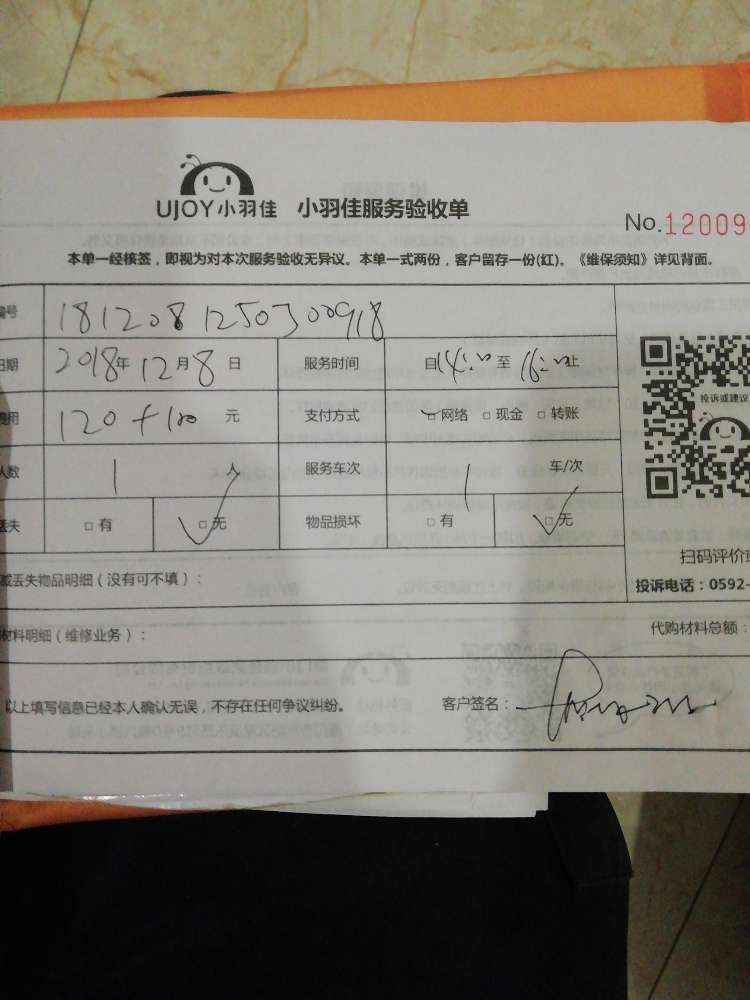 UJOY小羽佳 小羽佳服务验收单
No.12009
本单一经核签，即视为对本次服务验收无异议。本单一式两份，客户留存一份(红)。《维保须知》详见背面。
编号 1812081250300918
日期 2018年12月8日 服务时间 自14:00至16:00止
费用 120+100 元 支付方式 □网络 □现金 □转账
人数 1 人 服务车次 1 车/次
丢失 □有 □无 物品损坏 □有 □无
投诉或建议
扫码评价或
投诉电话：0592-
或丢失物品明细（没有可不填）：
材料明细（维修业务）： 代购材料总额：
以上填写信息已经本人确认无误，不存在任何争议纠纷。 客户签名：